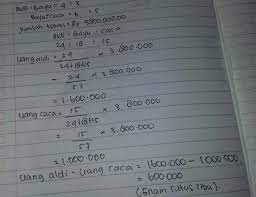 Aldi : Bayu = 4 : 3
Bayu : caca = 6 : 5
Jumlah total = Rp 3.800.000,00
Aldi : Bayu : caca
24 : 18 : 15
Uang aldi = 24 / 24+18+15 × 3.800.000
= 24 / 57 × 3.800.000
= 1.600.000
Uang caca = 15 / 24+18+15 × 3.800.000
= 15 / 57 × 3.800.000
= 1.000.000
Uang aldi - Uang caca = 1600.000 - 1000.000
= 600.000
(Enam ratus ribu)